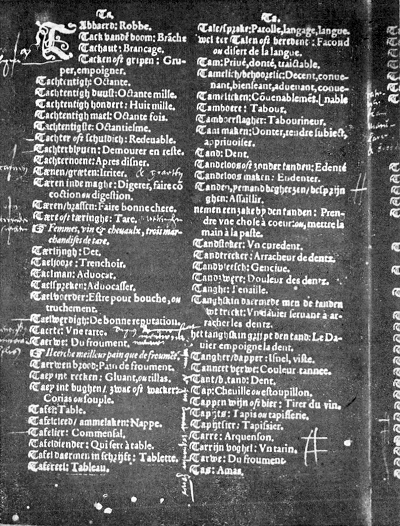 Ta.
TAbbaert: Robbe.
Tack vandē boom: Brāche
Tachaut: Brancage.
Tacken oft gripen: Gru-
per, empoigner.
Tachtentigh: Octante.
Tachtentigh duust: Octante mille.
Tachtentigh hondert: Huit mille.
Tachtentigh mael: Octante fois.
Tachtentigste: Octantiesme.
Tachter oft schuldich: Redeuable.
Tachterblyuen: Demourer en reste.
Tachternoene: Apres disner.
Tæren inde maghe: Digerer, faire co
coction ou digestion.
Tæren/brassen: Faire bonne chere.
Tære oft tæringhe: Tare,
Femmes, vin & cheuaulx, trois mar-
chandises de tare.
Taelman: Aduocat.
Taelspreken: Aduocasser.
Taelvoerder: Estre pour bouche, ou
truchement.
Taelwerdigh: De bonne reputation.
Taerte: Vne tarte.
Taerwe: Du froument.
Il cerche meilleur pain que de froumēt.
Taerwen broed: Pain de froument.
Taey int trecken: Gluant, ou tillas.
Taey int bughen / swac oft wacker:
Corias ou souple.
Tafel: Table.
Tafelcleed / ammelaken: Nappe.
Tafelier: Commensal,
Tafeldiender: Qui sert à table.
Tafel daermen in schrijft: Tablette.
Tafereel: Tableau.
Ta.
Tale/sprake: Parolle, langage, langue.
wel ter Talen oft beredent: Facond
ou disert de la langue.
Tam: Priué, donté, traictable.
Tamelich/behoorelic: Decent, conue-
nant, bienseant, aduenant, conue-
nable
Tamelicken: Cōuenablemēt.
Tamboert: Tabour.
Tamboerslagher: Tabourineur.
Tam maken: Donter, rendre subiect,
appriuoiser.
Tand: Dent.
Tandeloos oft sonder tanden: Edenté
Tandeloos maken: Eudenter.
Tanden, yemand begherzen/
ghen: Assaillir.
nemen een sake by den tanden: Pren-
dre vne chose à cœur ou, mettre la
main à la paste.
Tandstoker: Vn curedent.
Tandtrecker: Arracheur de dentz.
Tandvleesch: Genciue.
Tandtwere: Douleur des dentz.
Tanghe: Tenaille.
Tanghskin daermede men de tanden
wt treckt: Vn dauier seruant à ar-
racher les dentz.
het tanghskin grijpt den tand: Le Da-
uier empoigne la dent.
Tangher/dapper: Isnel, viste.
Tanneet verwe: Couleur tannee.
Tant/b. tand: Dent,
Tap: Cheuille ou estoupillon.
Tappen wijn oft bier: Tirer du vin.
Tapijts: Tapis ou tapisserie,
Tapijtsier: Tapissier.
Tarre: Arquenson.
Tarrijn voghel: Vn tarin.
Tarwe: Du froument.
Tas: Amas.